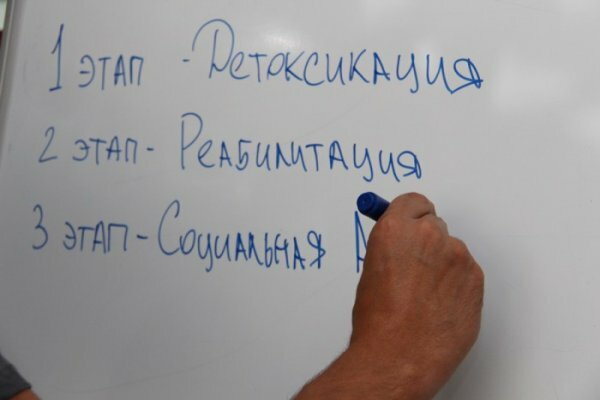 1 этап - Детоксикация
2 этап - Реабилитация
3 этап - Социальная